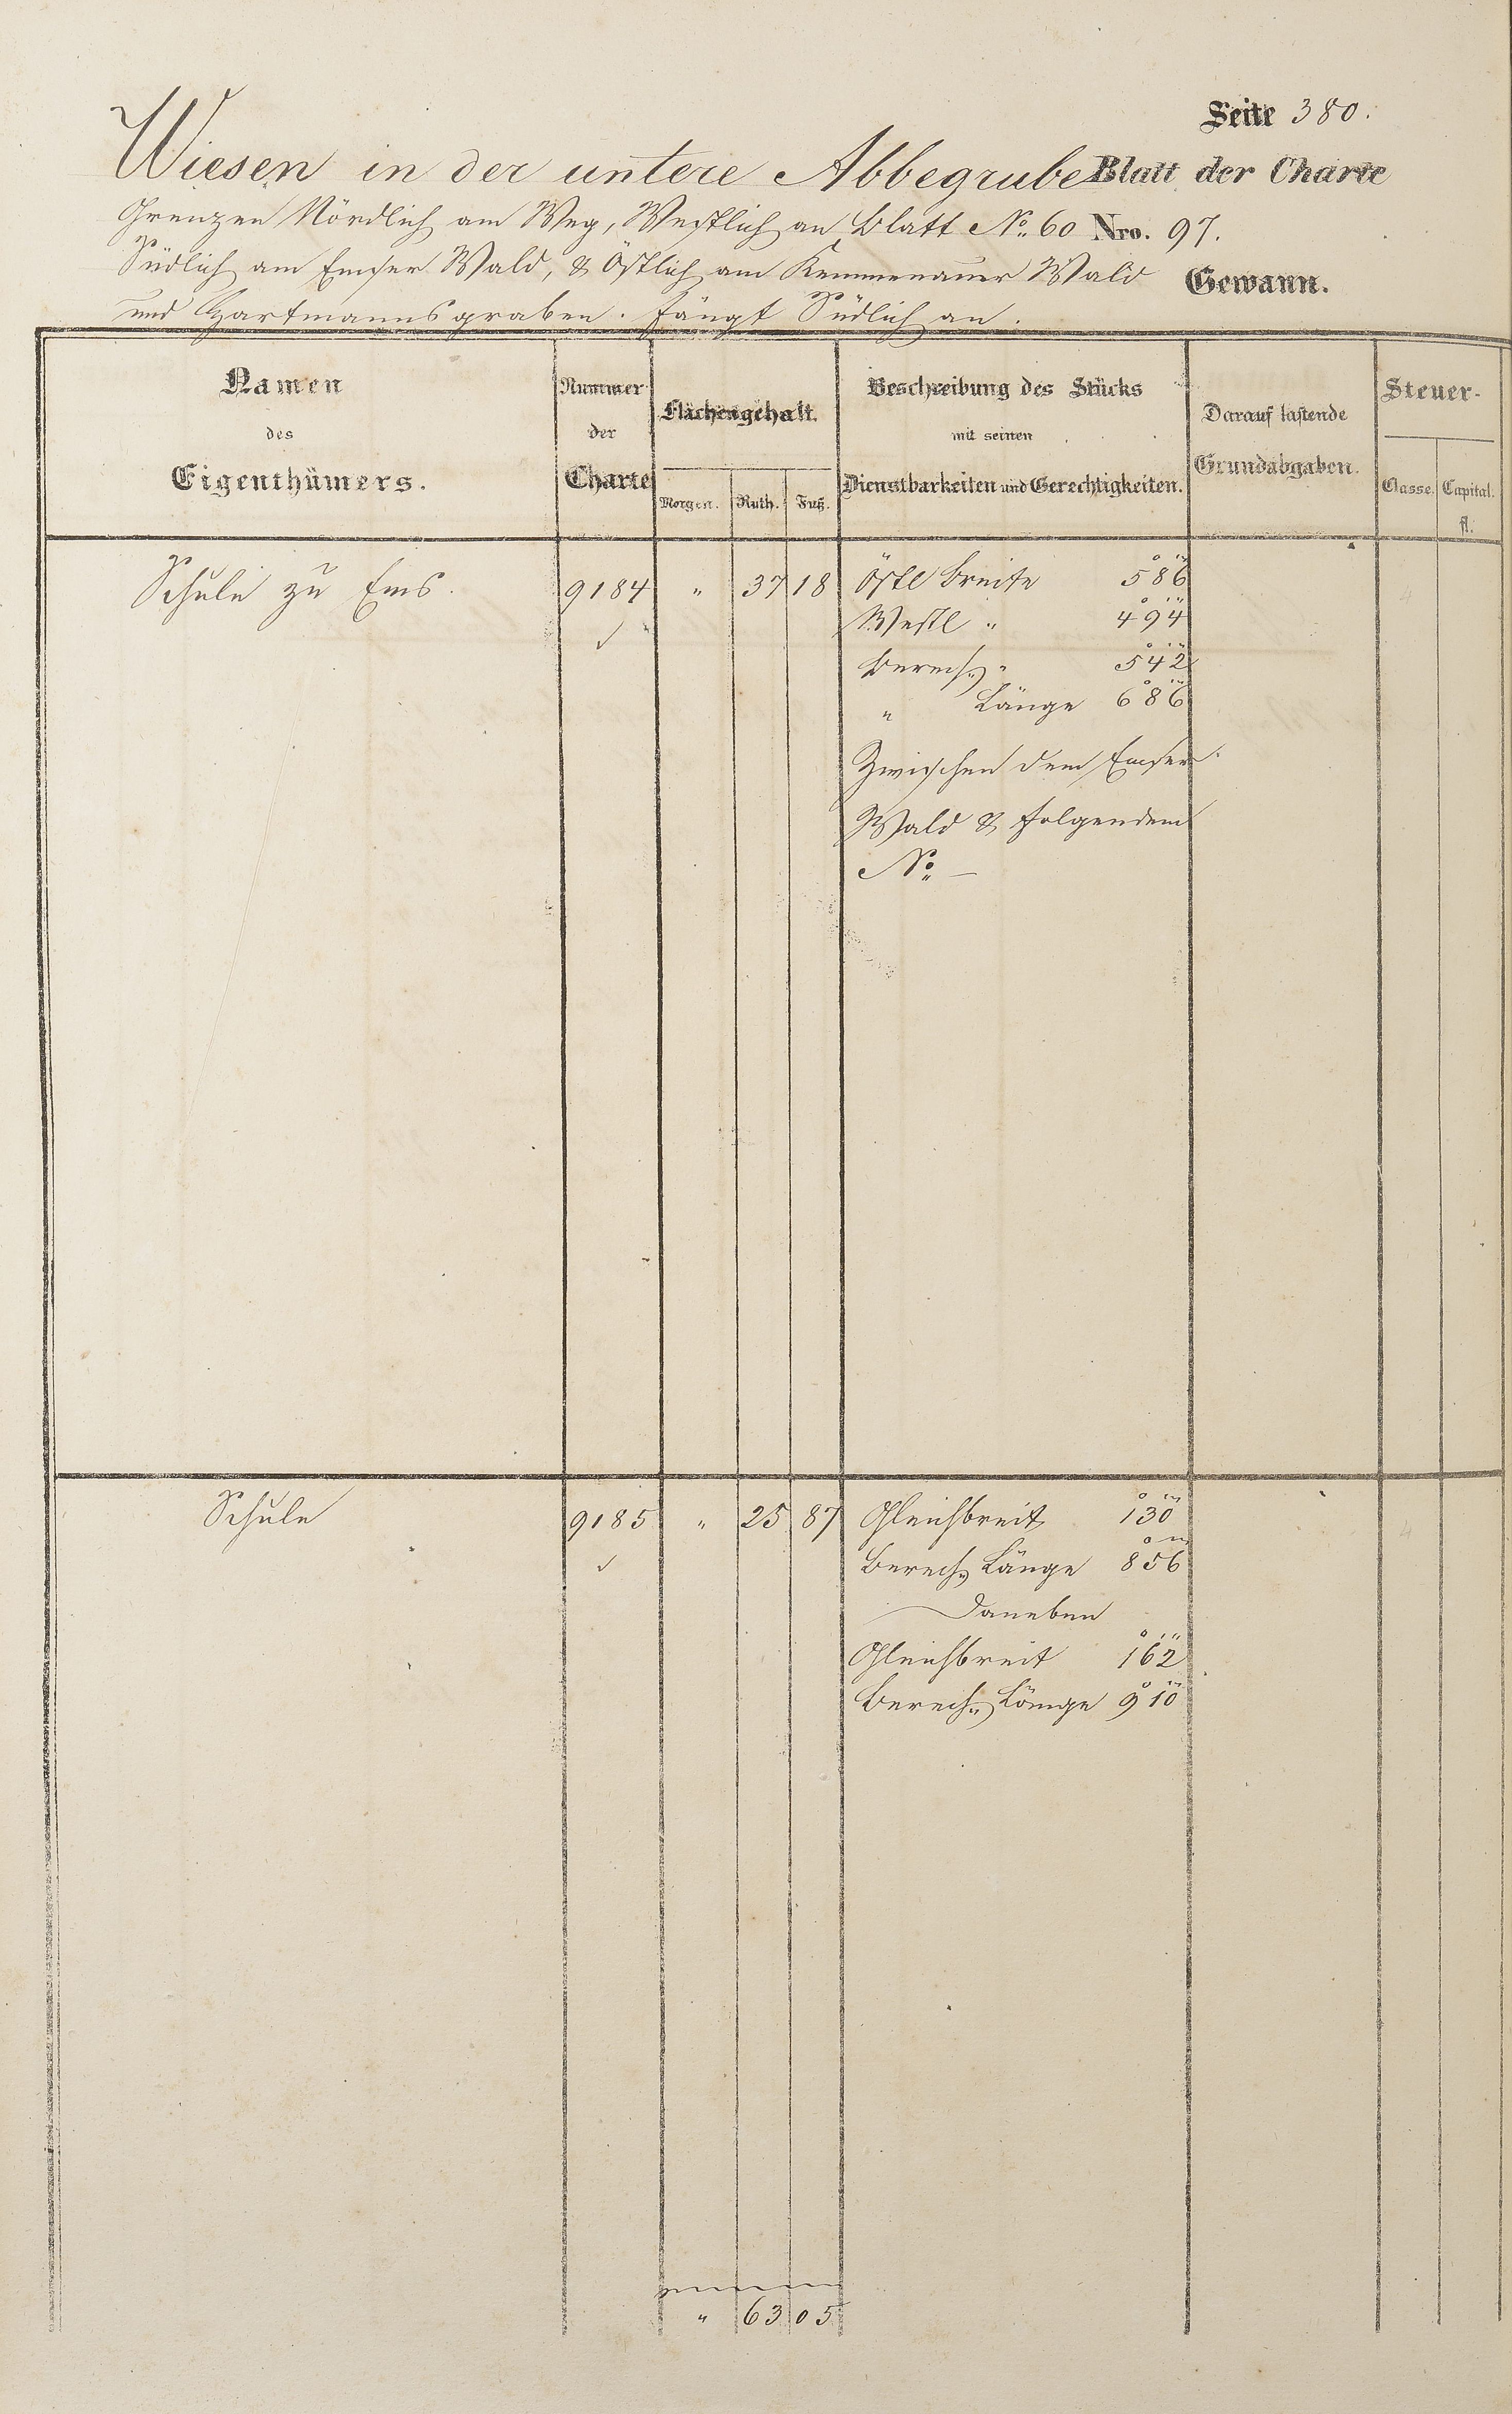 Seite 380.
Wiesen in der untere Abbegrube Blatt der Charte
Grenzen Nördlich am Weg, Westlich an Blatt No. 60 Nro. 97.
Südlich am Emser Wald, & Östlich am Kemmenauer Wald Gewann.
und Hartmannsgraben. fängt Südlich an.
Namen des Eigenthümers.
Nummer der Charte
Flächengehalt.
Morgen. Ruth. Fuß.
Beschreibung des Stücks mit seinen Dienstbarkeiten und Gerechtigkeiten.
Darauf lastende Grundabgaben.
Steuer-
Classe. Capital. fl.
Schule zu Ems. 9184 " 37 18 Östl Breite 5° 8' 6"
Westl " 4° 9' 4"
Berech. " 5° 4' 2"
" Länge 6° 8' 6"
Zwischen dem Emser
Wald & folgendem
No. —
4
Schule 9185 " 25 87 Gleichbreit 1° 3' 0"
Berech. Länge 8° 5' 6"
Daneben
Gleichbreit 1° 6' 2"
Berech. Länge 9° 1' 0"
4
" 63 05